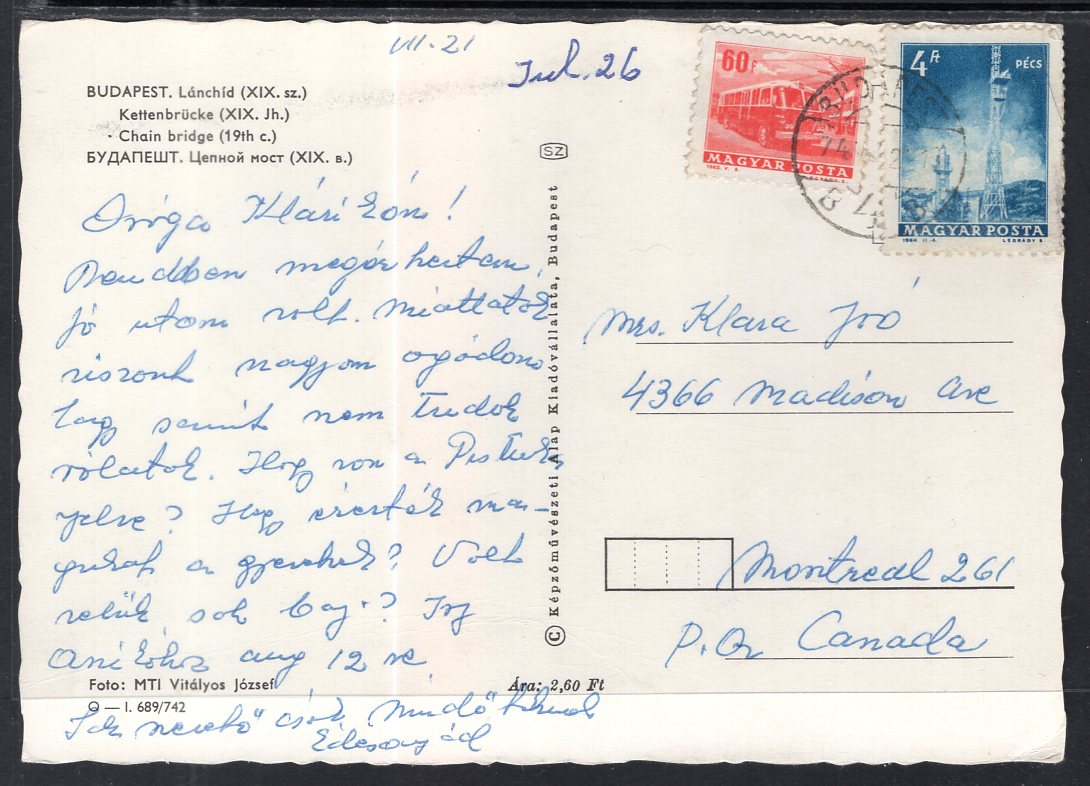 VII. 21
Jul. 26
BUDAPEST. Lánchíd (XIX. sz.)
Kettenbrücke (XIX. Jh.)
Chain bridge (19th c.)
БУДАПЕШТ. Цепной мост (XIX. в.)
60f
MAGYAR POSTA
4 Ft PÉCS
MAGYAR POSTA
1964 LÉGRÁDY S
BUDAPEST
74
SZ
Drága Klárikám!
Rendben megérkeztem,
jó utam volt. Miattatok
viszont nagyon aggódom
semmit nem tudok
rólatok. Hogy van a Pistuka
nyelve? Hogy érezték ma-
gukat a gyerekek? Volt
velük sok baj? Írj
Anikóhoz aug 12 re
Foto: MTI Vitályos József
Ára: 2,60 Ft
— I. 689/742
Sok szerető csók
Édesanyád
© Képzőművészeti Alap Kiadóvállalata, Budapest
Mrs. Klara Joó
4366 Madison Ave
Montreal 261
P.Q. Canada